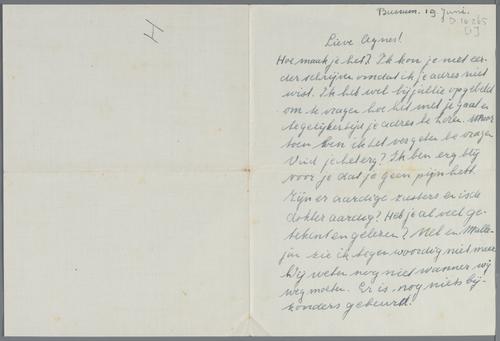 H
Bussum. 19 Juni.
D.10265
DJ
Lieve Agnes!
Hoe maak je het? Ik kon je niet eer-
der schrijven omdat ik je adres niet
wist. Ik heb wel bij jullie opgebeld
om te vragen hoe het met je gaat en
tegelijkertijd je adres te horen. Maar
toen ben ik het vergeten te vragen
Vind je het erg? Ik ben erg blij
voor je dat je geen pijn hebt.
Zijn er aardige zusters en is de
dokter aardig? Heb je al veel ge-
tekent en gelezen? Mel en
jan zie ik tegenwoordig niet meer
Wij weten nog niet wanner wij
weg moeten. Er is nog niets bij-
zonders gebeurd.